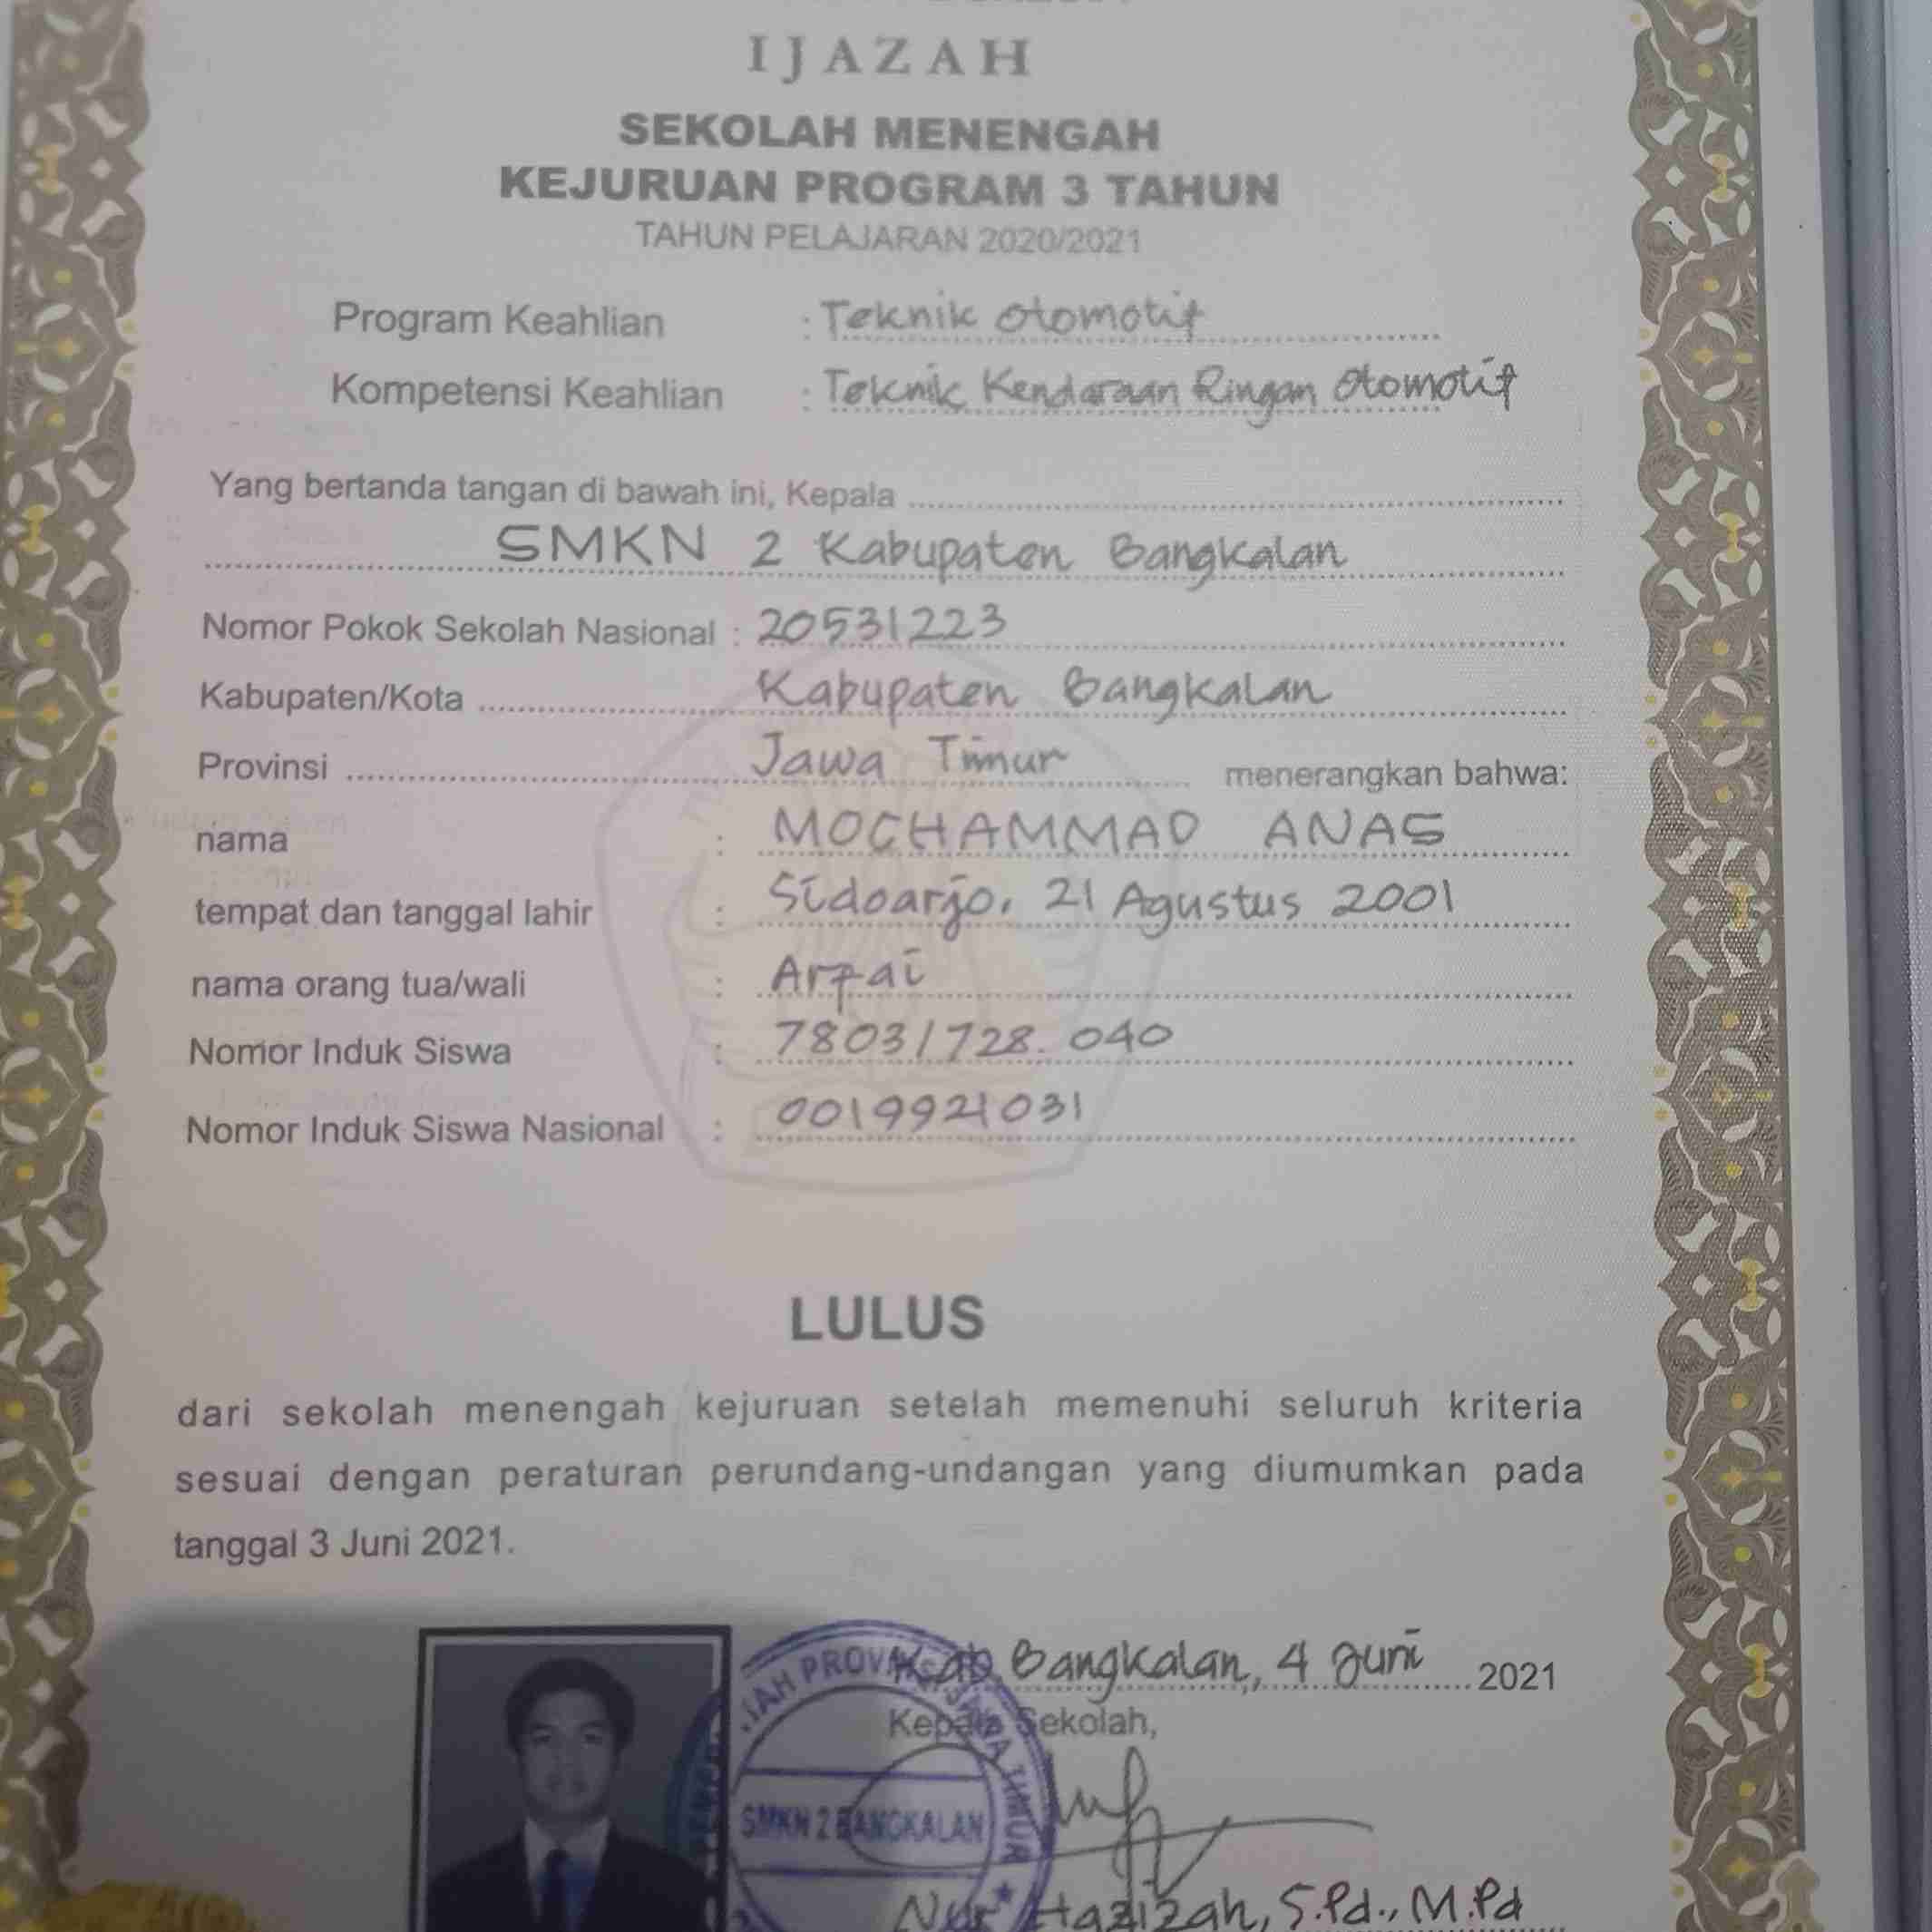 IJAZAH
SEKOLAH MENENGAH
KEJURUAN PROGRAM 3 TAHUN
TAHUN PELAJARAN 2020/2021
Program Keahlian : Teknik Otomotif
Kompetensi Keahlian : Teknik Kendaraan Ringan Otomotif
Yang bertanda tangan di bawah ini, Kepala
SMKN 2 Kabupaten Bangkalan
Nomor Pokok Sekolah Nasional : 20531223
Kabupaten/Kota Kabupaten Bangkalan
Provinsi Jawa Timur menerangkan bahwa:
nama : MOCHAMMAD ANAS
tempat dan tanggal lahir : Sidoarjo, 21 Agustus 2001
nama orang tua/wali : Arpai
Nomor Induk Siswa : 7803/728.040
Nomor Induk Siswa Nasional : 0019921031
LULUS
dari sekolah menengah kejuruan setelah memenuhi seluruh kriteria
sesuai dengan peraturan perundang-undangan yang diumumkan pada
tanggal 3 Juni 2021.
Kab. Bangkalan, 4 Juni 2021
Kepala Sekolah,
JAWA TIMUR
SMKN 2 BANGKALAN
Nur Hazizah, S.Pd., M.Pd